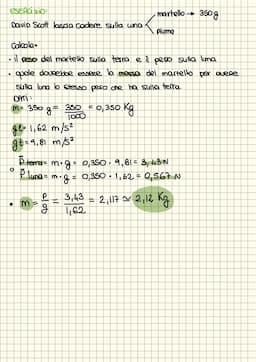 ESERCIZIO:
David Scott lascia cadere sulla luna < martello → 350g
piume
Calcola:
• il peso del martello sulla terra e il peso sulla luna
• quale dovrebbe essere la massa del martello per avere
sulla luna lo stesso peso che ha sulla terra
DATI:
m = 350 g = 350/1000 = 0,350 Kg
gl = 1,62 m/s²
gt = 9,81 m/s²
• P terra = m·g = 0,350 · 9,81 = 3,43 N
P luna = m·g = 0,350 · 1,62 = 0,567 N
• m = P/g = 3,43/1,62 = 2,117 ≃ 2,12 Kg